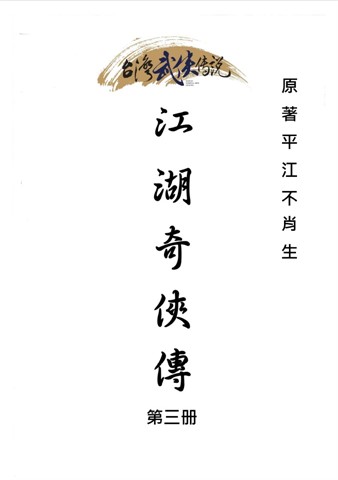 台灣武俠傳說
江湖奇俠傳
第三册
原著平江不肖生